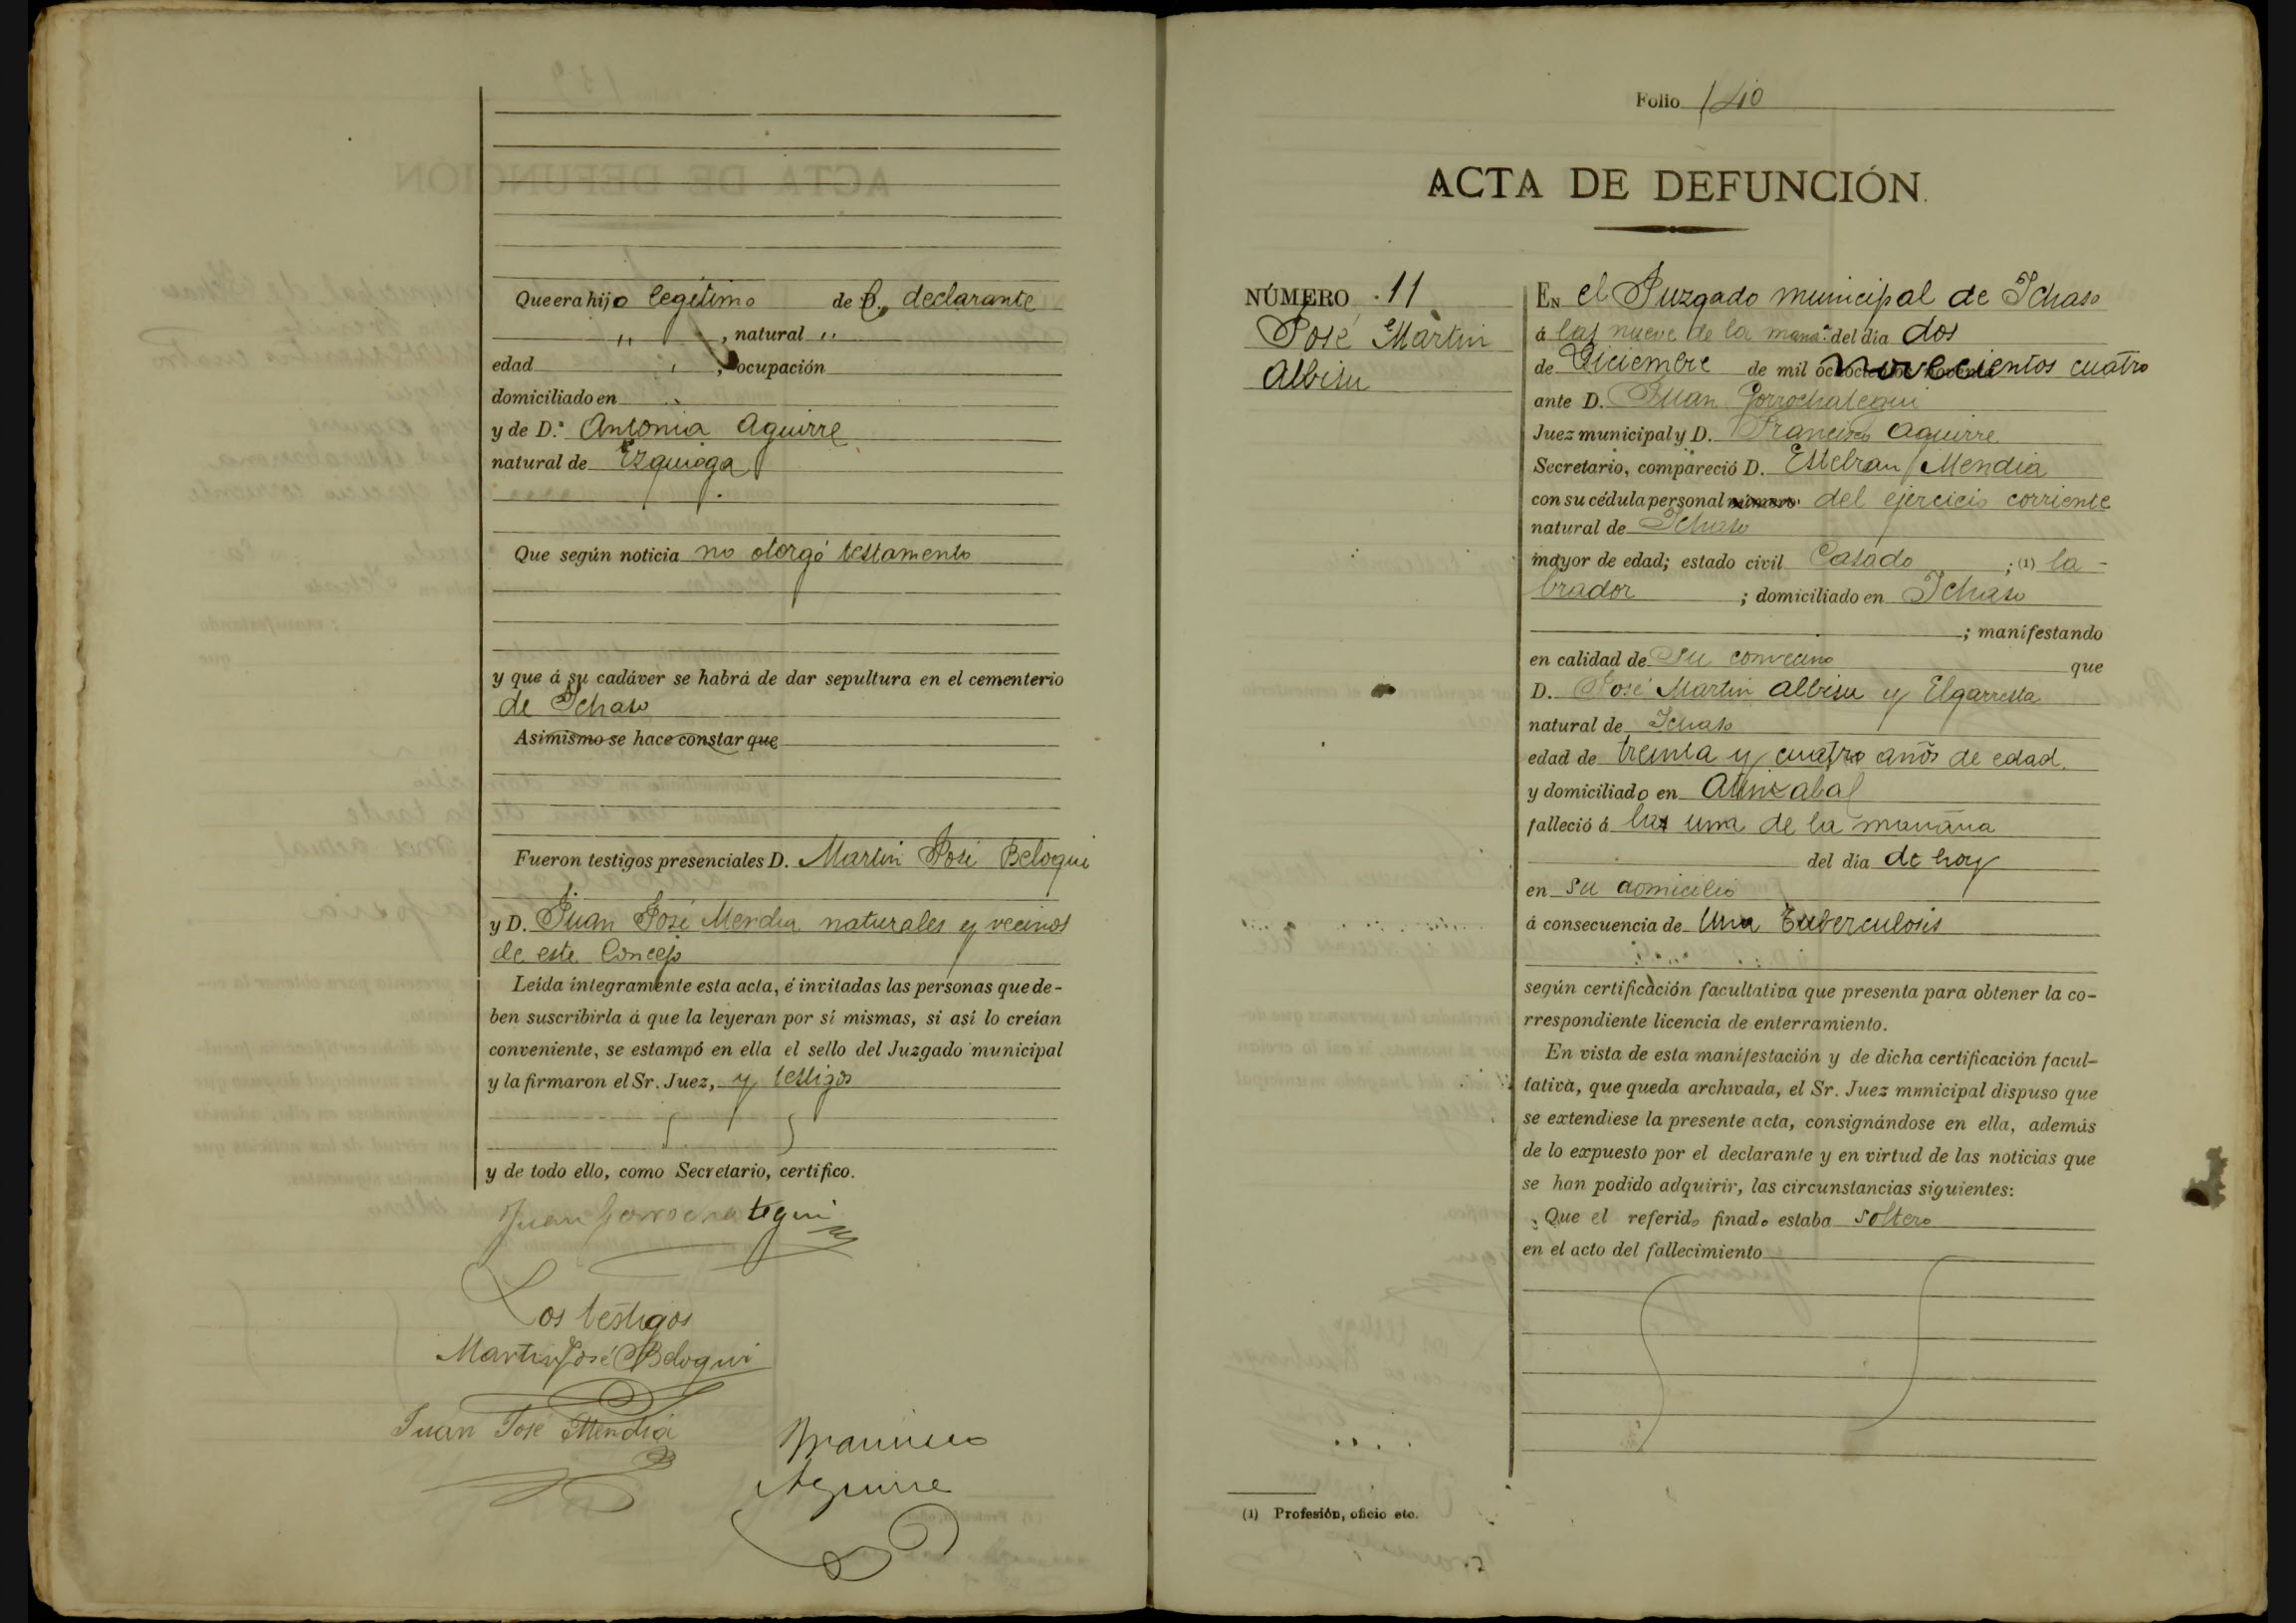 Que era hijo legítimo de D., declarante
" , natural "
edad " , ocupación
domiciliado en "
y de D.ª Antonia Aguirre
natural de Ezquioga
Que según noticia no otorgó testamento
y que á su cadáver se habrá de dar sepultura en el cementerio
de Ichaso
Asimismo se hace constar que
Fueron testigos presenciales D. Martin José Beloqui
y D. Juan José Mendia naturales y vecinos
de este Concejo
Leída íntegramente esta acta, é invitadas las personas que de-
ben suscribirla á que la leyeran por sí mismas, si así lo creían
conveniente, se estampó en ella el sello del Juzgado municipal
y la firmaron el Sr. Juez, y testigos
y de todo ello, como Secretario, certifico.
Juan Gorrochategui
Los testigos
Martin José Beloqui
Juan José Mendia
Francisco
Aguirre
Folio 140
ACTA DE DEFUNCIÓN.
NÚMERO 11
José Martin
Albisu
EN el Juzgado municipal de Ichaso
á las nueve de la mañª. del día dos
de Diciembre de mil novecientos cuatro
ante D. Juan Gorrochategui
Juez municipal y D. Francisco Aguirre
Secretario, compareció D. Esteban Mendia
con su cédula personal número del ejercicio corriente
natural de Ichaso
mayor de edad; estado civil Casado ; (1) la-
brador ; domiciliado en Ichaso
; manifestando
en calidad de su convecino que
D. José Martin Albisu y Elgarresta
natural de Ichaso
edad de treinta y cuatro años de edad.
y domiciliado en
falleció á las una de la mañana
del día de hoy
en su domicilio
á consecuencia de Una Tuberculosis
según certificación facultativa que presenta para obtener la co-
rrespondiente licencia de enterramiento.
En vista de esta manifestación y de dicha certificación facul-
tativa, que queda archivada, el Sr. Juez municipal dispuso que
se extendiese la presente acta, consignándose en ella, además
de lo expuesto por el declarante y en virtud de las noticias que
se han podido adquirir, las circunstancias siguientes:
Que el referido finado estaba soltero
en el acto del fallecimiento
(1) Profesión, oficio etc.